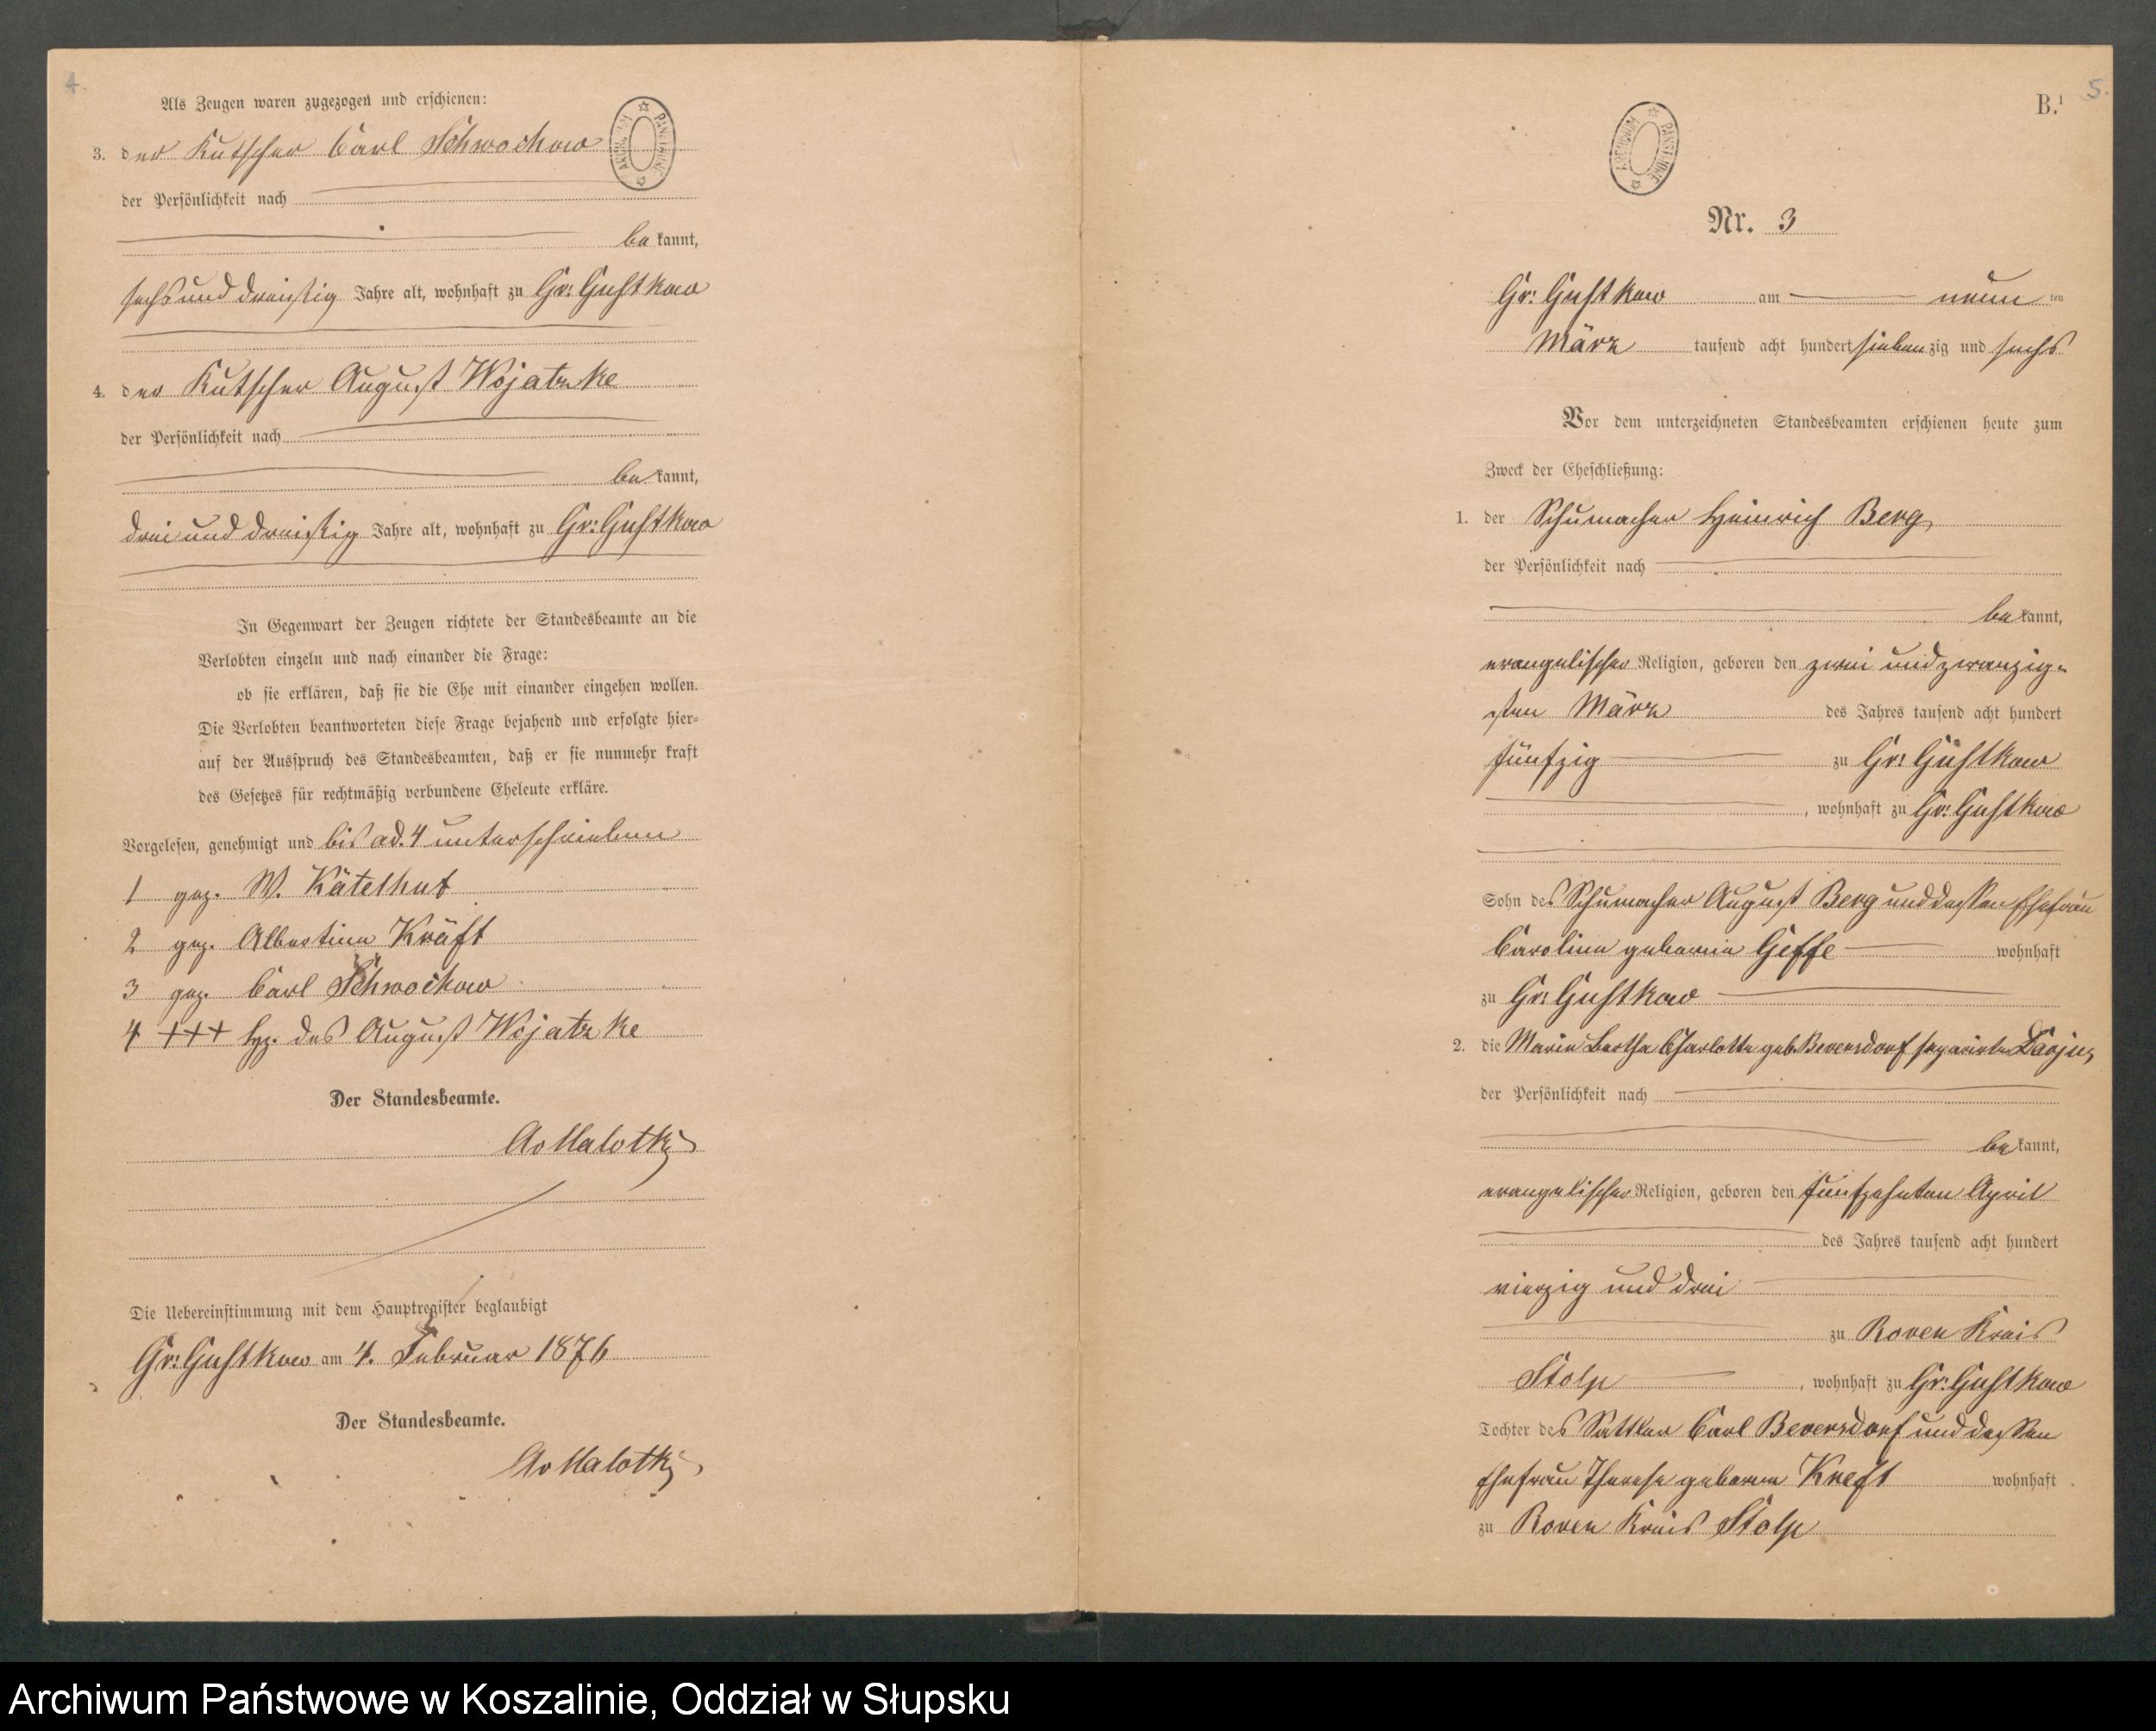 4.
Als Zeugen waren zugezogen und erschienen:
3. der Kutscher Carl Schwochow
der Persönlichkeit nach
bekannt,
sechs und dreißig Jahre alt, wohnhaft zu Gr: Gustkow
4. der Kutscher August Wojatzke
der Persönlichkeit nach
bekannt,
drei und dreißig Jahre alt, wohnhaft zu Gr: Gustkow
In Gegenwart der Zeugen richtete der Standesbeamte an die
Verlobten einzeln und nach einander die Frage:
ob sie erklären, daß sie die Ehe mit einander eingehen wollen.
Die Verlobten beantworteten diese Frage bejahend und erfolgte hier-
auf der Ausspruch des Standesbeamten, daß er sie nunmehr kraft
des Gesetzes für rechtmäßig verbundene Eheleute erkläre.
Vorgelesen, genehmigt und bis ad. 4 unterschrieben
1 gez. W. Kätelhut
2 gez. Albertine Kräft
3 gez. Carl Schwochow
4 +++ Hz. des August Wojatzke
Der Standesbeamte.
AvMalotky
Die Uebereinstimmung mit dem Hauptregister beglaubigt
Gr: Gustkow am 4. Februar 1876
Der Standesbeamte.
AvMalotky
ARCHIWUM PAŃSTWOWE
5.
B.¹
ARCHIWUM PAŃSTWOWE
Nr. 3
Gr: Gustkow am neun ten
März tausend acht hundert siebenzig und sechs
Vor dem unterzeichneten Standesbeamten erschienen heute zum
Zweck der Eheschließung:
1. der Schumacher Heinrich Berg,
der Persönlichkeit nach
bekannt,
evangelischer Religion, geboren den zwei und zwanzig-
sten März des Jahres tausend acht hundert
fünfzig zu Gr: Gustkow
, wohnhaft zu Gr: Gustkow
Sohn des Schumacher August Berg und dessen Ehefrau
Caroline geborene Geffe wohnhaft
zu Gr: Gustkow
2. die Marie Bertha Charlotte geb. Beversdorf separirte
der Persönlichkeit nach
bekannt,
evangelischer Religion, geboren den fünfzehnten April
des Jahres tausend acht hundert
vierzig und drei
zu Roven Kreis
Stolp , wohnhaft zu Gr: Gustkow
Tochter des Sattler Carl Beversdorf und dessen
Ehefrau Therese geborene Kreft wohnhaft
zu Roven Kreis Stolp
Archiwum Państwowe w Koszalinie, Oddział w Słupsku